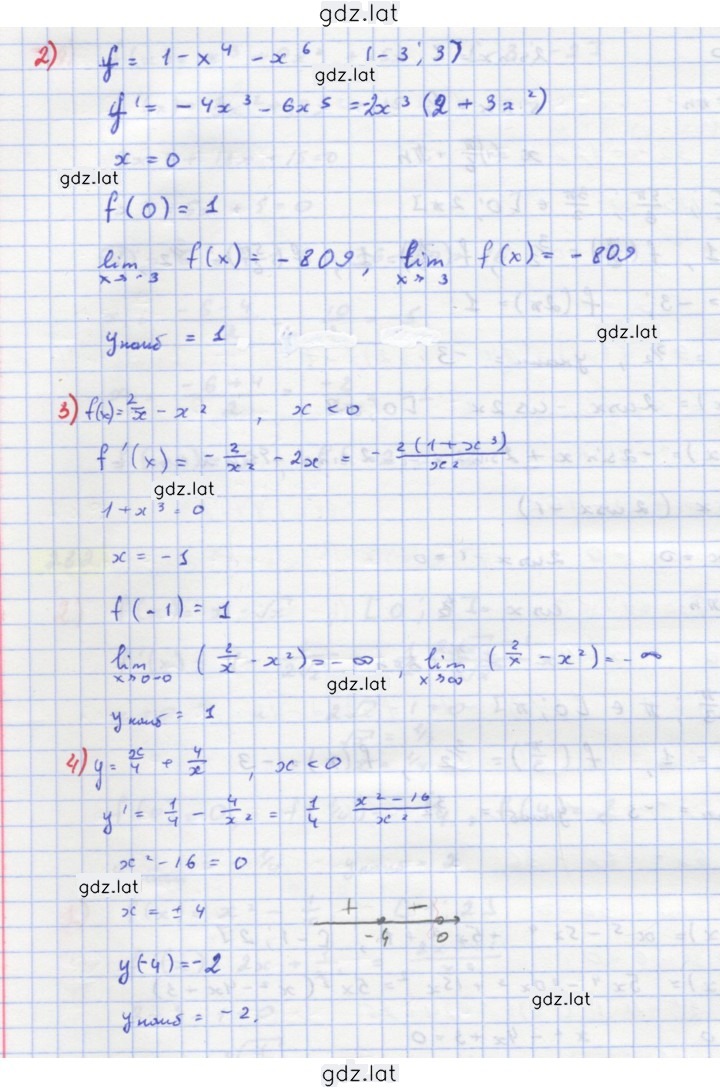 gdz.lat
2) y = 1 - x⁴ - x⁶ (-3; 3)
gdz.lat
y' = -4x³ - 6x⁵ = -2x³ (2 + 3x²)
x = 0
gdz.lat
f(0) = 1
lim x→-3 f(x) = -809, lim x→3 f(x) = -809
yнаиб = 1
gdz.lat
3) f(x) = 2/x - x², x < 0
f'(x) = -2/x² - 2x = -2(1+x³)/x²
gdz.lat
1 + x³ = 0
x = -1
f(-1) = 1
lim x→0-0 (2/x - x²) = -∞, lim x→∞ (2/x - x²) = -∞
gdz.lat
yнаиб = 1
4) y = x/4 + 4/x, x < 0
y' = 1/4 - 4/x² = 1/4 x²-16/x²
x² - 16 = 0
gdz.lat
x = ±4 + -
-4 0
y(-4) = -2
gdz.lat
yнаиб = -2.
gdz.lat